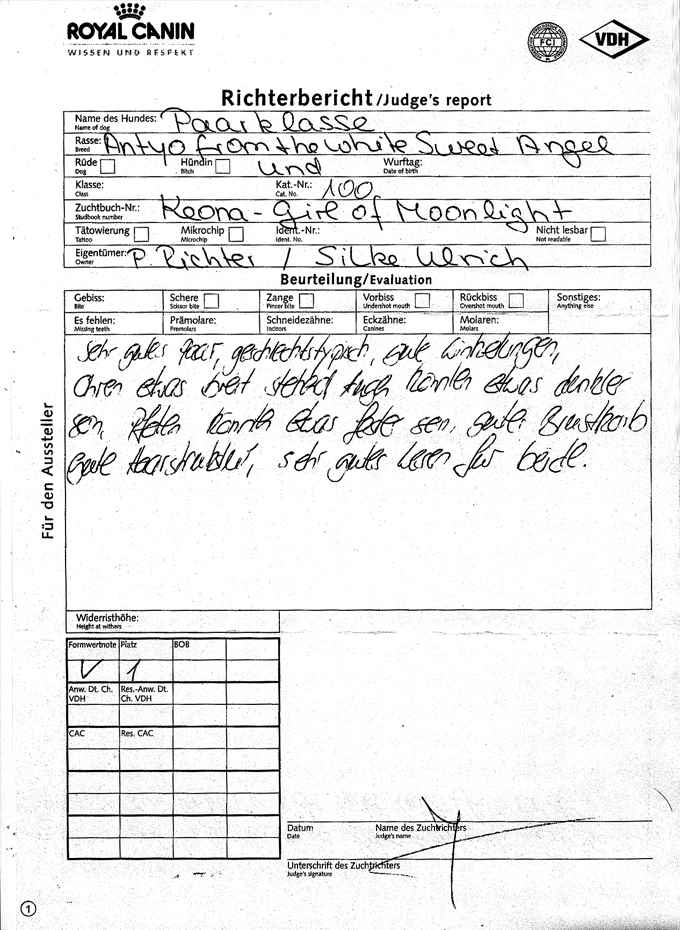 ROYAL CANIN
WISSEN UND RESPEKT
FCI
VDH
Richterbericht/Judge's report
Name des Hundes: Paarklasse
Name of dog
Rasse: Antyo from the white Sweet Angel
Breed
Rüde Hündin und Wurftag:
Dog Bitch Date of birth
Klasse: Kat.-Nr.: 100
Class Cat. No.
Zuchtbuch-Nr.: Keona-Girl of Moonlight
Studbook number
Tätowierung Mikrochip Ident.-Nr.: Nicht lesbar
Tattoo Microchip Ident. No. Not readable
Eigentümer: P. Richter / Silke Ulrich
Owner
Beurteilung/Evaluation
Gebiss: Schere Zange Vorbiss Rückbiss Sonstiges:
Bite Scissor bite Pincer bite Undershot mouth Overshot mouth Anything else
Es fehlen: Prämolare: Schneidezähne: Eckzähne: Molaren:
Missing teeth Premolars Incisors Canines Molars
Sehr gutes Paar, geschlechtstypisch, gute Winkelungen,
Ohren etwas breit stehend könnten etwas dunkler
sein, Pfoten könnten etwas fester sein, guter Brustkorb
Gute Haarstruktur, sehr gutes Wesen für beide.
Für den Aussteller
Widerristhöhe:
Height at withers
Formwertnote Platz BOB
V 1
Anw. Dt. Ch. VDH Res.-Anw. Dt. Ch. VDH
CAC Res. CAC
Datum Name des Zuchtrichters
Date Judge's name
Unterschrift des Zuchtrichters
Judge's signature
1